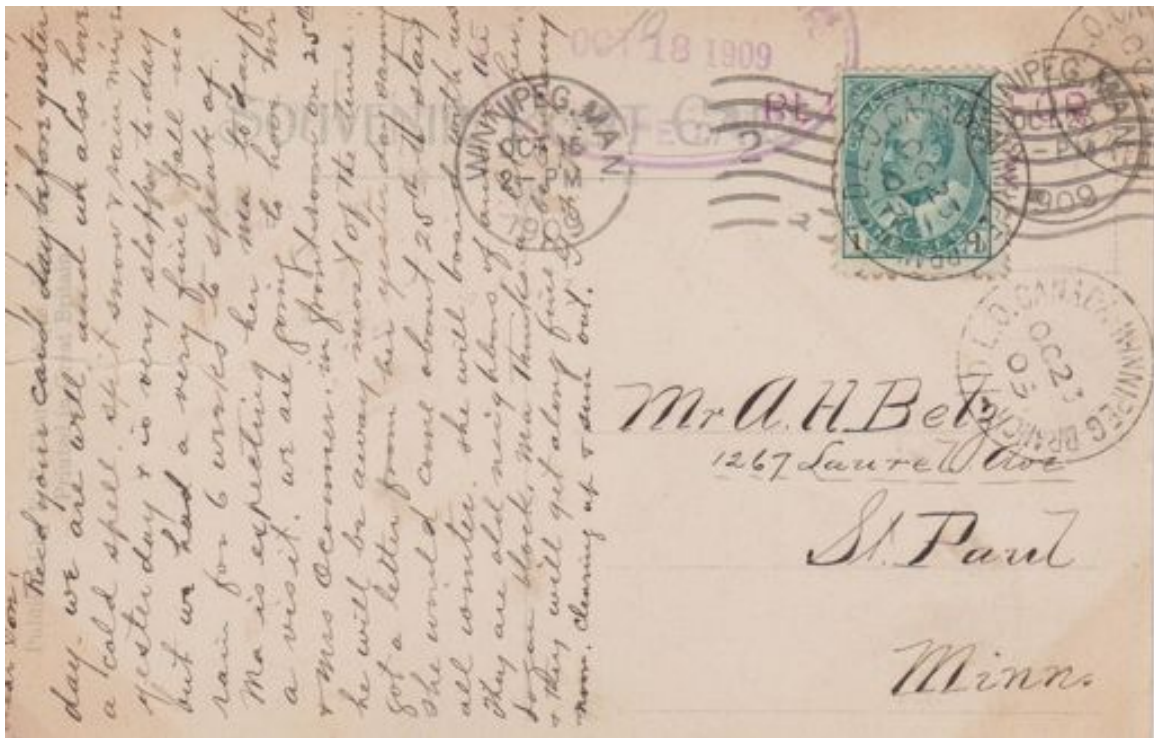 Rec'd your card day before yester
day - we are well, and we also have
a cold spell. spit snow & rain mixed
yesterday & is very sloppy to-day
but we had a very fine fall no
rain for 6 weeks to speak of.
Ma is expecting her ma to-day for
a visit. we are going to have Mr
& Mrs in frontroom on 25th
he will be away most of the time.
got a letter from her yesterday saying
she would come about 25th to stay
all winter. she will board with us
they are old neighbors of the
Logan block, Ma thinks
& they will get along fine
noon. clearing up & sun out.
SOUVENIR POST CARD
OCT 18 1909
WINNIPEG, MAN.
OCT 15
2-PM
1909
2
WINNIPEG, MAN.
1909
D.L.O. CANADA
WINNIPEG BRANCH
D.L.O. CANADA. WINNIPEG BRANCH
OC 23
09
Mr A. H. Betz
1267 Laurel Ave
St. Paul
Minn.